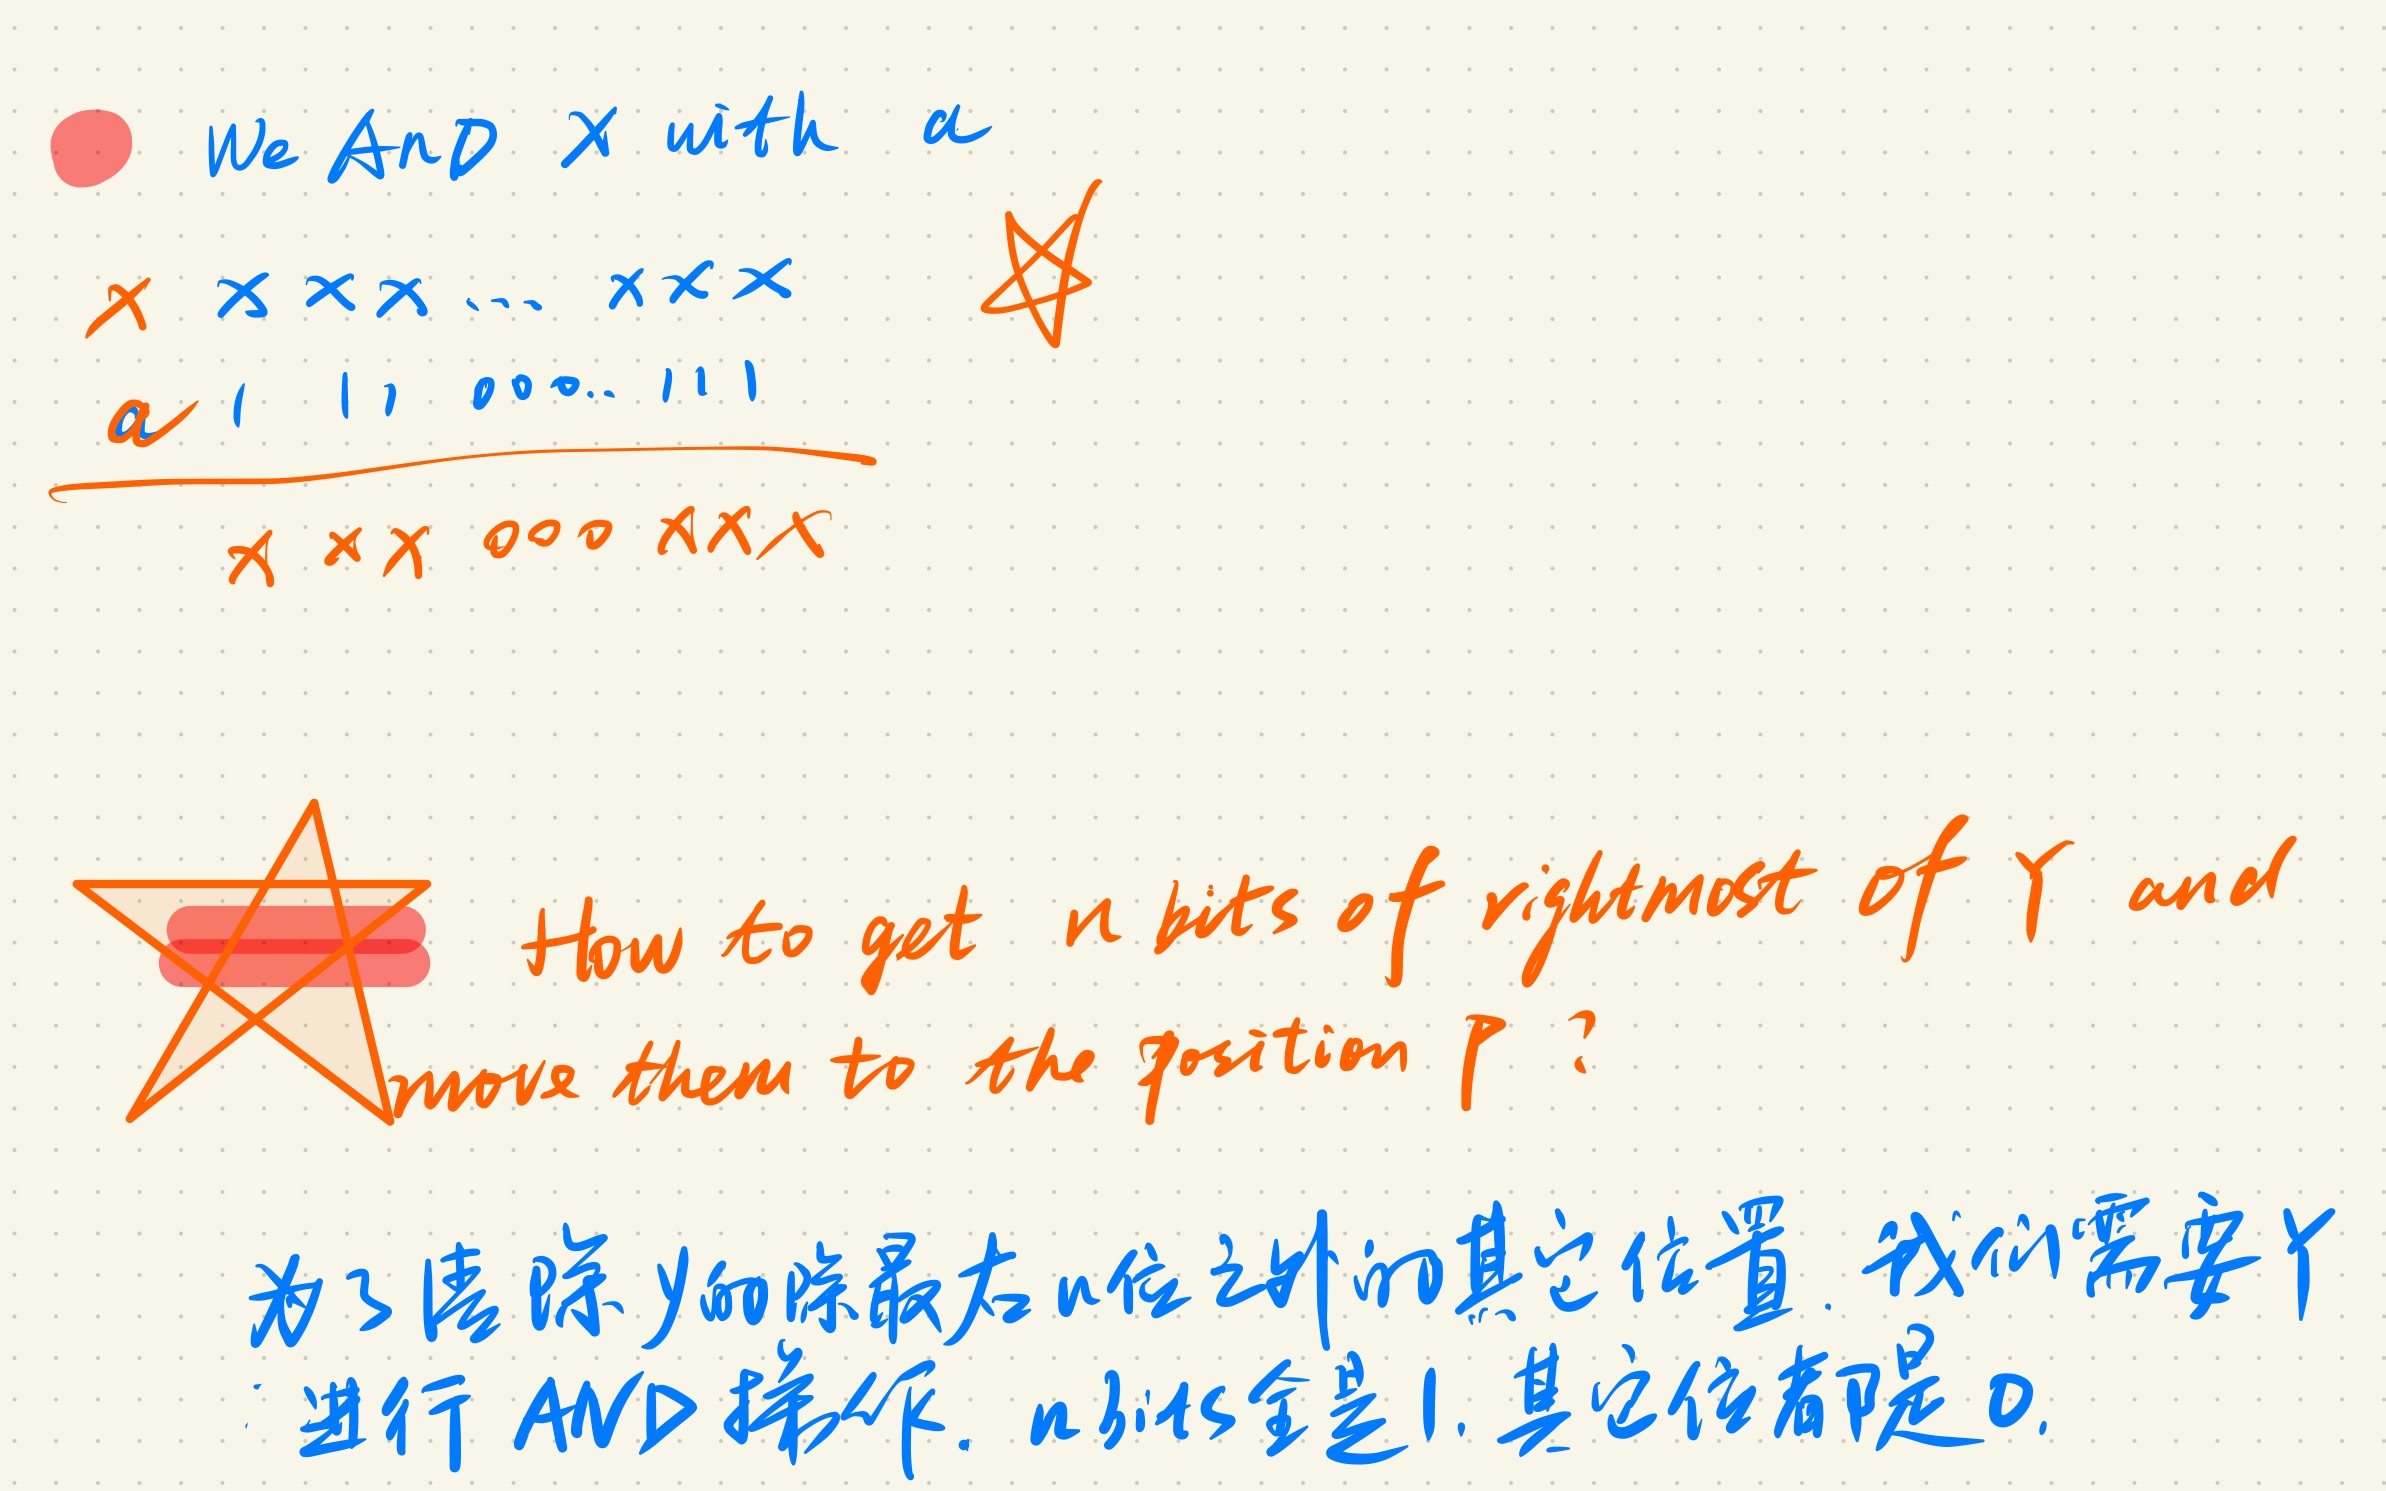 We AND X with a
x x x x ... x x x
a 1 1 1 000.. 1 1 1
x x x 000 x x x
How to get n bits of rightmost of Y and
move them to the position P ?
为了清除Y的除最右n位之外的其它位置. 我们需要Y
进行AND操作. n bits全是1. 其它位都是0.